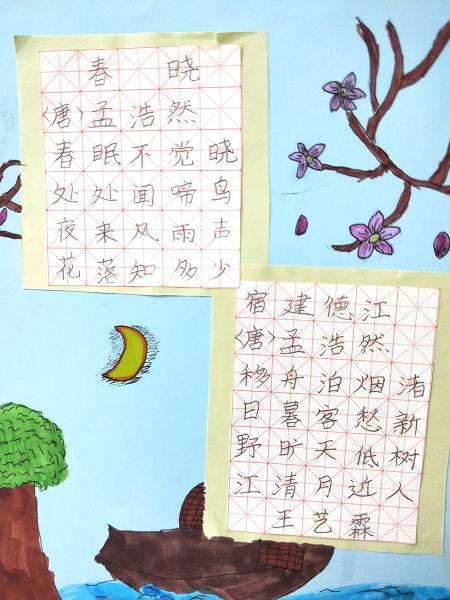 春晓
〈唐〉孟浩然
春眠不觉晓
处处闻啼鸟
夜来风雨声
花落知多少
宿建德江
〈唐〉孟浩然
移舟泊烟渚
日暮客愁新
野旷天低树
江清月近人
王艺霖